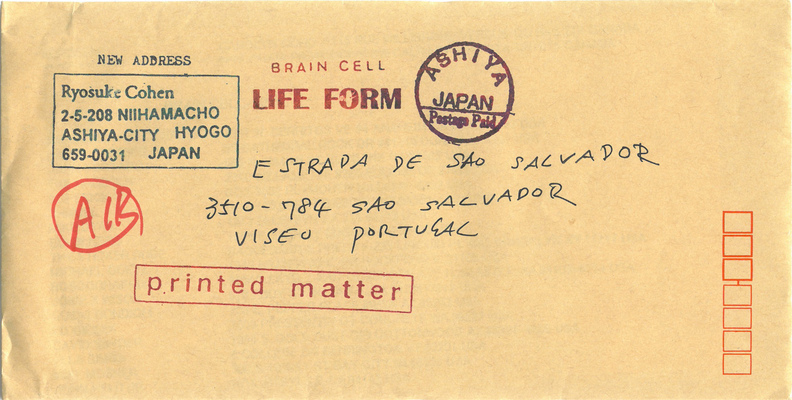 NEW ADDRESS
Ryosuke Cohen
2-5-208 NIIHAMACHO
ASHIYA-CITY HYOGO
659-0031 JAPAN
BRAIN CELL
LIFE FORM
ASHIYA
JAPAN
Postage Paid
ESTRADA DE SAO SALVADOR
3510-784 SAO SALVADOR
VISEU PORTUGAL
AIR
printed matter